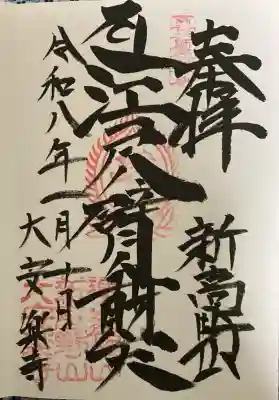 奉拝
新高野山
江戸八臂弁財天
令和八年一月十日
大安楽寺